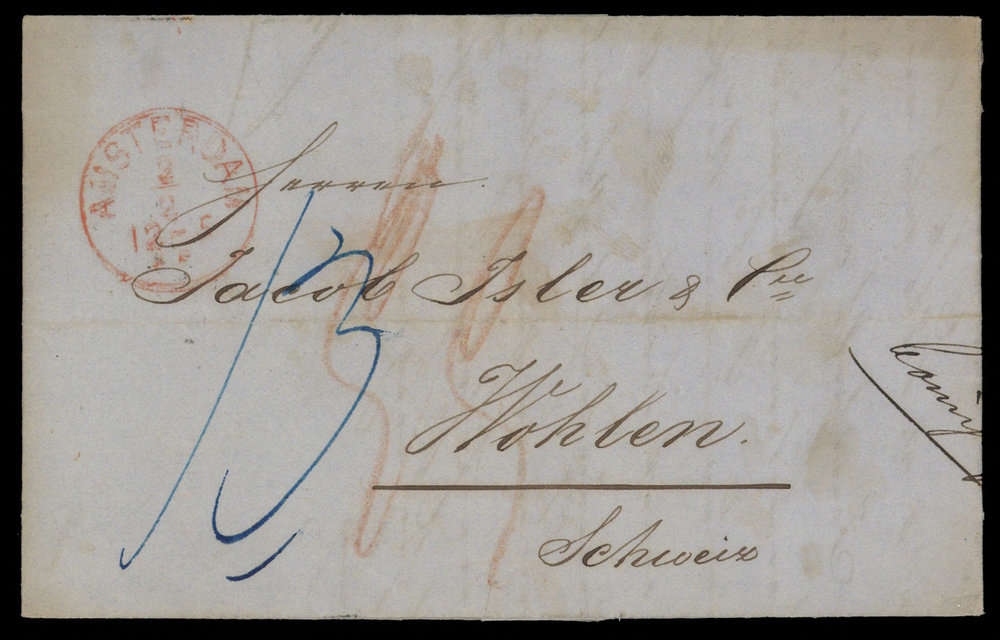 AMSTERDAM
Herren
Jacob Isler & Cie
Wohlen.
Schweiz
13